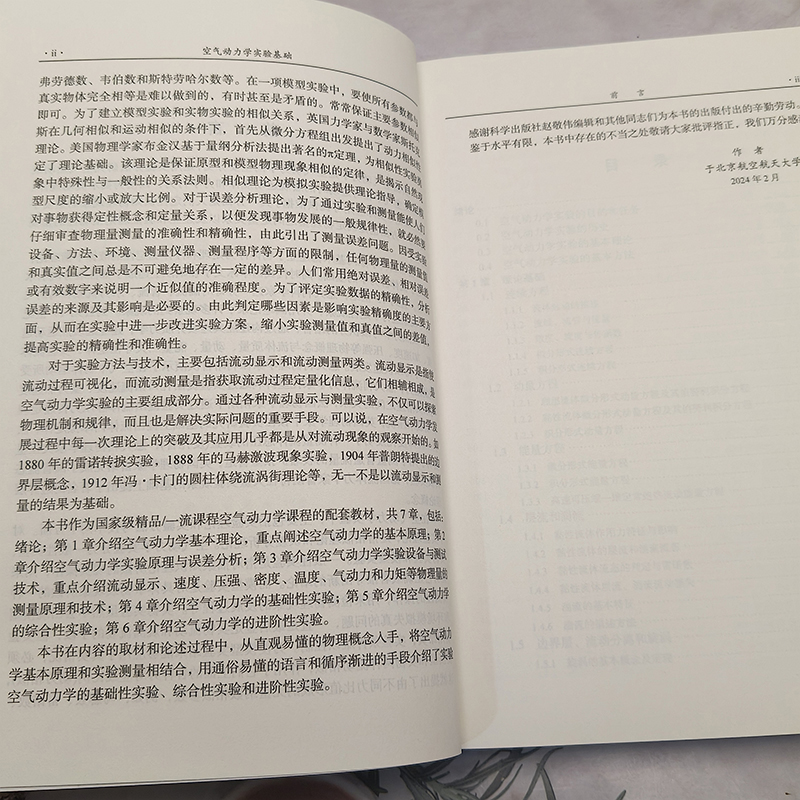 · ii ·
空气动力学实验基础
弗劳德数、韦伯数和斯特劳哈尔数等。在一项模型实验中，要使所有参数都与
真实物体完全相等是难以做到的，有时甚至是矛盾的。常常保证主要参数相似
即可。为了建立模型实验和实物实验的相似关系，英国力学家与数学家斯托克
斯在几何相似和运动相似的条件下，首先从微分方程组出发提出了动力相似的
理论。美国物理学家布金汉基于量纲分析法提出著名的π定理，为相似性实验奠
定了理论基础。该理论是保证原型和模型物理现象相似的定律，是揭示自然现
象中特殊性与一般性的关系法则。相似理论为模拟实验提供理论指导，确定模
型尺度的缩小或放大比例。对于误差分析理论，为了通过实验和测量能使人们
对事物获得定性概念和定量关系，以便发现事物发展的一般规律性，就必然要
仔细审查物理量测量的准确性和精确性，由此引出了测量误差问题。因受实验
设备、方法、环境、测量仪器、测量程序等方面的限制，任何物理量的测量值
和真实值之间总是不可避免地存在一定的差异。人们常用绝对误差、相对误差
或有效数字来说明一个近似值的准确程度。为了评定实验数据的精确性，分析
误差的来源及其影响是必要的。由此判定哪些因素是影响实验精确度的主要方
面，从而在实验中进一步改进实验方案，缩小实验测量值和真值之间的差值，
提高实验的精确性和准确性。
对于实验方法与技术，主要包括流动显示和流动测量两类。流动显示是指使
流动过程可视化，而流动测量是指获取流动过程定量化信息，它们相辅相成，是
空气动力学实验的主要组成部分。通过各种流动显示与测量实验，不仅可以探索
物理机制和规律，而且也是解决实际问题的重要手段。可以说，在空气动力学发
展过程中每一次理论上的突破及其应用几乎都是从对流动现象的观察开始的。如
1880 年的雷诺转捩实验，1888 年的马赫激波现象实验，1904 年普朗特提出的边
界层概念，1912 年冯·卡门的圆柱体绕流涡街理论等，无一不是以流动显示和测
量的结果为基础。
本书作为国家级精品/一流课程空气动力学课程的配套教材，共 7 章，包括：
绪论；第 1 章介绍空气动力学基本理论，重点阐述空气动力学的基本原理；第 2
章介绍空气动力学实验原理与误差分析；第 3 章介绍空气动力学实验设备与测试
技术，重点介绍流动显示、速度、压强、密度、温度、气动力和力矩等物理量的
测量原理和技术；第 4 章介绍空气动力学的基础性实验；第 5 章介绍空气动力学
的综合性实验；第 6 章介绍空气动力学的进阶性实验。
本书在内容的取材和论述过程中，从直观易懂的物理概念入手，将空气动力
学基本原理和实验测量相结合，用通俗易懂的语言和循序渐进的手段介绍了实验
空气动力学的基础性实验、综合性实验和进阶性实验。
前 言
感谢科学出版社赵敬伟编辑和其他同志们为本书的出版付出的辛勤劳动。
鉴于水平有限，本书中存在的不当之处敬请大家批评指正，我们万分感
作 者
于北京航空航天大学
2024 年 2 月